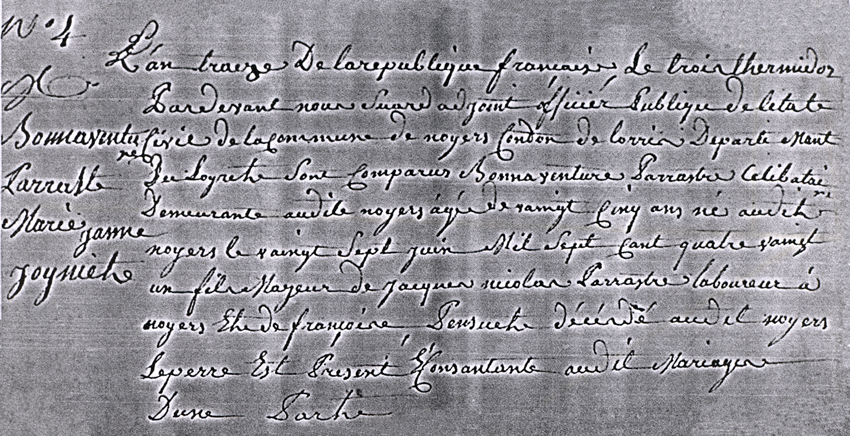 N° 4
M
Bonnaventu
re
Parrastre
Marie janne
Joyniete
L'an traeze De la republique francaise Le trois thermidor
Pardevant nous Suard adjoint officiér Publique de letate
Civile de la Commune de noyers Condon de lorris Departe Mant
Du Loyrete Sont Comparus Bonnaventure Parrastre Celibatai
re
Demeurante audite noyers agé de vaingt Cinq ans né audit
noyers le vaingt Sept juin Mil Sept Cant quatre vaingt
un fils Majeur de jacques nicolas Parrastre laboureur à
noyers Et de françoise Pensuete décédé audit noyers
Leperre Est Présent Consantante audit Mariage
Dune Parte